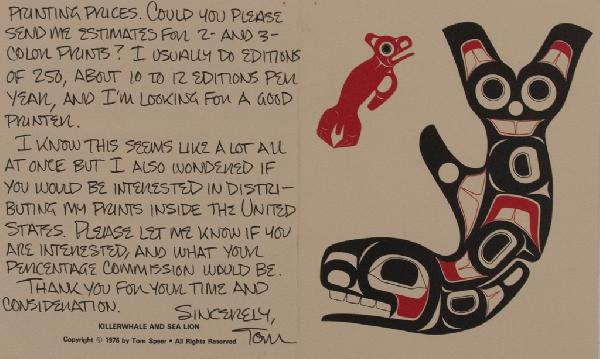 PRINTING PRICES. COULD YOU PLEASE
SEND ME ESTIMATES FOR 2- AND 3-
COLOR PRINTS? I USUALLY DO EDITIONS
OF 250, ABOUT 10 TO 12 EDITIONS PER
YEAR, AND I'M LOOKING FOR A GOOD
PRINTER.
I KNOW THIS SEEMS LIKE A LOT ALL
AT ONCE BUT I ALSO WONDERED IF
YOU WOULD BE INTERESTED IN DISTRI-
BUTING MY PRINTS INSIDE THE UNITED
STATES. PLEASE LET ME KNOW IF YOU
ARE INTERESTED, AND WHAT YOUR
PERCENTAGE COMMISSION WOULD BE.
THANK YOU FOR YOUR TIME AND
CONSIDERATION.
SINCERELY,
Tom
KILLERWHALE AND SEA LION
Copyright © 1976 by Tom Speer • All Rights Reserved